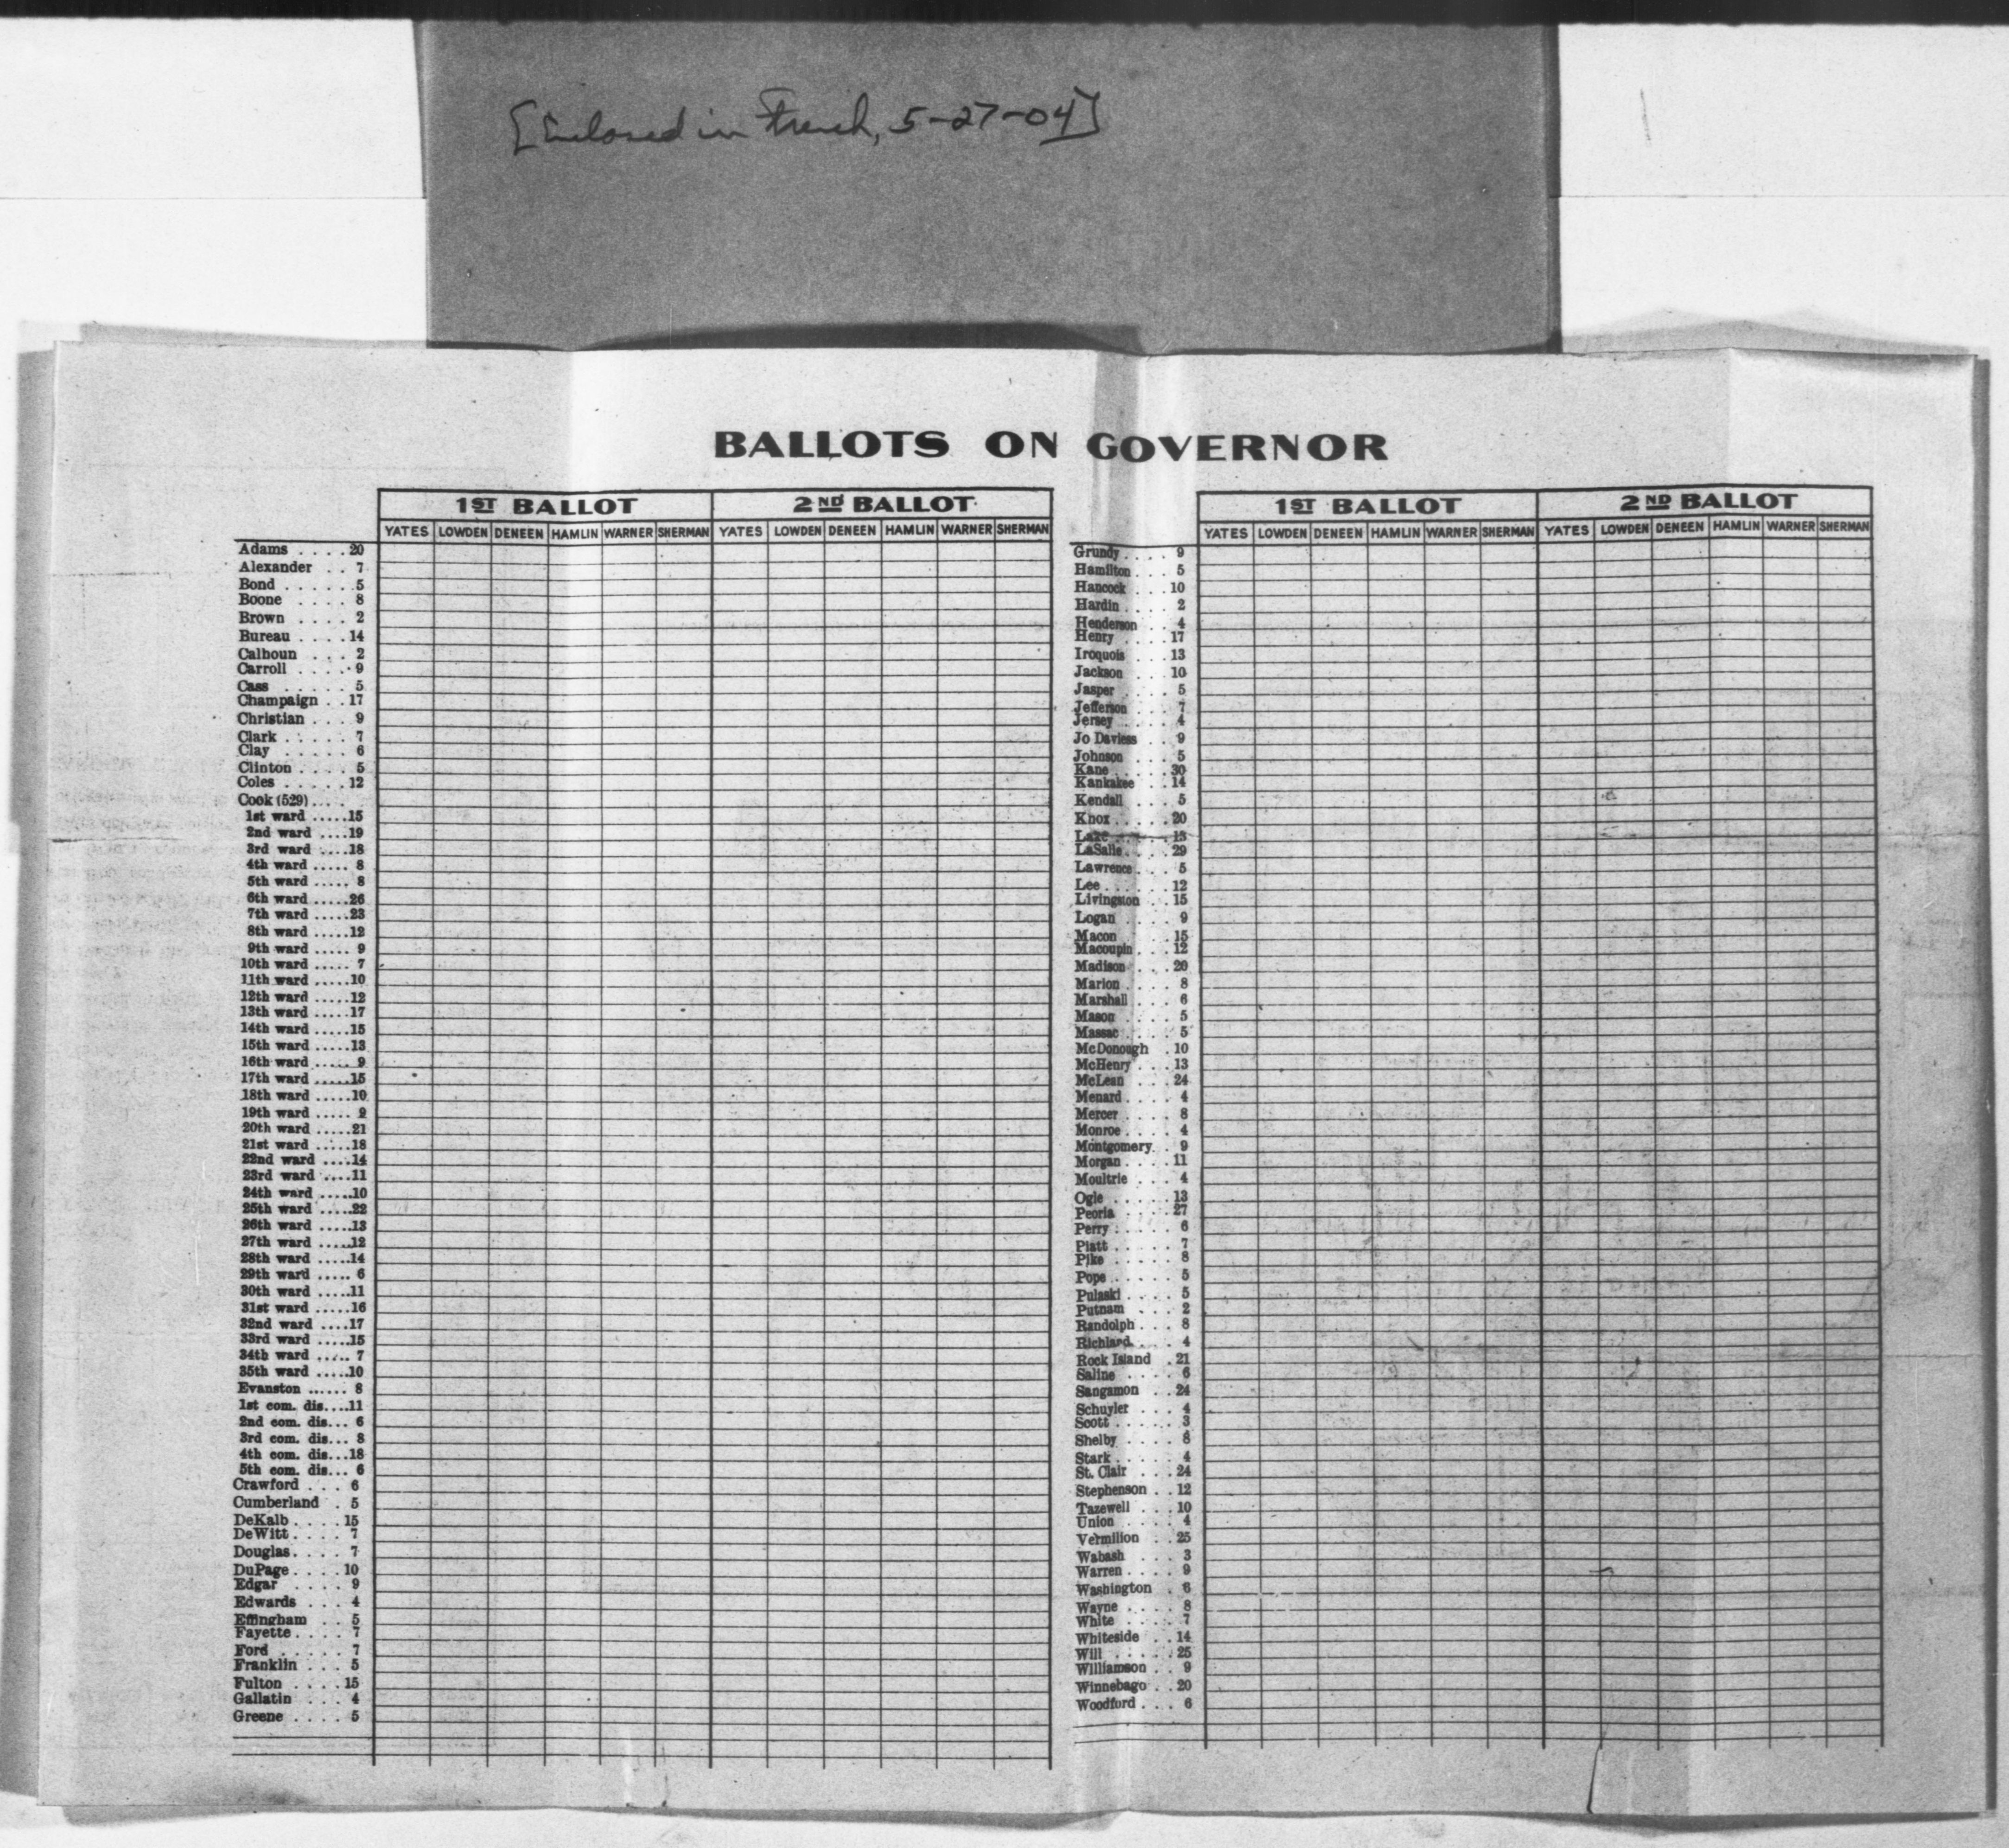 [Enclosed in French, 5-27-04]
BALLOTS ON GOVERNOR
1ST BALLOT 2ND BALLOT
YATES LOWDEN DENEEN HAMLIN WARNER SHERMAN YATES LOWDEN DENEEN HAMLIN WARNER SHERMAN
Adams . . . . 20
Alexander . . 7
Bond . . . . . 5
Boone . . . . 8
Brown . . . . 2
Bureau . . . . 14
Calhoun . . . 2
Carroll . . . . 9
Cass . . . . . 5
Champaign . . 17
Christian . . . 9
Clark . . . . . 7
Clay . . . . . 6
Clinton . . . . 5
Coles . . . . . 12
Cook (529) . . .
1st ward .....15
2nd ward ....19
3rd ward ....18
4th ward ..... 8
5th ward ..... 8
6th ward .....26
7th ward .....23
8th ward .....12
9th ward ..... 9
10th ward ..... 7
11th ward .....10
12th ward .....12
13th ward .....17
14th ward .....15
15th ward .....13
16th ward ..... 9
17th ward .....15
18th ward .....10
19th ward ..... 9
20th ward .....21
21st ward .....18
22nd ward ....14
23rd ward ....11
24th ward .....10
25th ward .....22
26th ward .....13
27th ward .....12
28th ward .....14
29th ward ..... 6
30th ward .....11
31st ward .....16
32nd ward ....17
33rd ward ....15
34th ward ..... 7
35th ward .....10
Evanston ...... 8
1st com. dis....11
2nd com. dis... 6
3rd com. dis... 8
4th com. dis...18
5th com. dis... 6
Crawford . . . 6
Cumberland . 5
DeKalb . . . . 15
DeWitt . . . . 7
Douglas . . . . 7
DuPage . . . . 10
Edgar . . . . 9
Edwards . . . 4
Effingham . . 5
Fayette . . . . 7
Ford . . . . . 7
Franklin . . . 5
Fulton . . . . 15
Gallatin . . . 4
Greene . . . . 5
1ST BALLOT 2ND BALLOT
YATES LOWDEN DENEEN HAMLIN WARNER SHERMAN YATES LOWDEN DENEEN HAMLIN WARNER SHERMAN
Grundy . . . . 9
Hamilton . . . 5
Hancock . . . 10
Hardin . . . . 2
Henderson . . 4
Henry . . . . 17
Iroquois . . . 13
Jackson . . . 10
Jasper . . . . 5
Jefferson . . . 7
Jersey . . . . 4
Jo Daviess . . 9
Johnson . . . 5
Kane . . . . . 30
Kankakee . . 14
Kendall . . . 5
Knox . . . . . 20
Lake . . . . . 13
LaSalle . . . . 29
Lawrence . . . 5
Lee . . . . . . 12
Livingston . . 15
Logan . . . . 9
Macon . . . . 15
Macoupin . . . 12
Madison . . . 20
Marion . . . . 8
Marshall . . . 6
Mason . . . . 5
Massac . . . . 5
McDonough . 10
McHenry . . . 13
McLean . . . 24
Menard . . . . 4
Mercer . . . . 8
Monroe . . . . 4
Montgomery . . 9
Morgan . . . . 11
Moultrie . . . 4
Ogle . . . . . 13
Peoria . . . . 27
Perry . . . . . 6
Piatt . . . . . 7
Pike . . . . . 8
Pope . . . . . 5
Pulaski . . . . 5
Putnam . . . 2
Randolph . . . 8
Richlard . . . . 4
Rock Island . 21
Saline . . . . 6
Sangamon . . 24
Schuyler . . . 4
Scott . . . . . 3
Shelby . . . . 8
Stark . . . . . 4
St. Clair . . . 24
Stephenson . . 12
Tazewell . . . 10
Union . . . . 4
Vermilion . . 25
Wabash . . . 3
Warren . . . . 9
Washington . 6
Wayne . . . . 8
White . . . . 7
Whiteside . . 14
Will . . . . . 25
Williamson . . 9
Winnebago . . 20
Woodford . . . 6